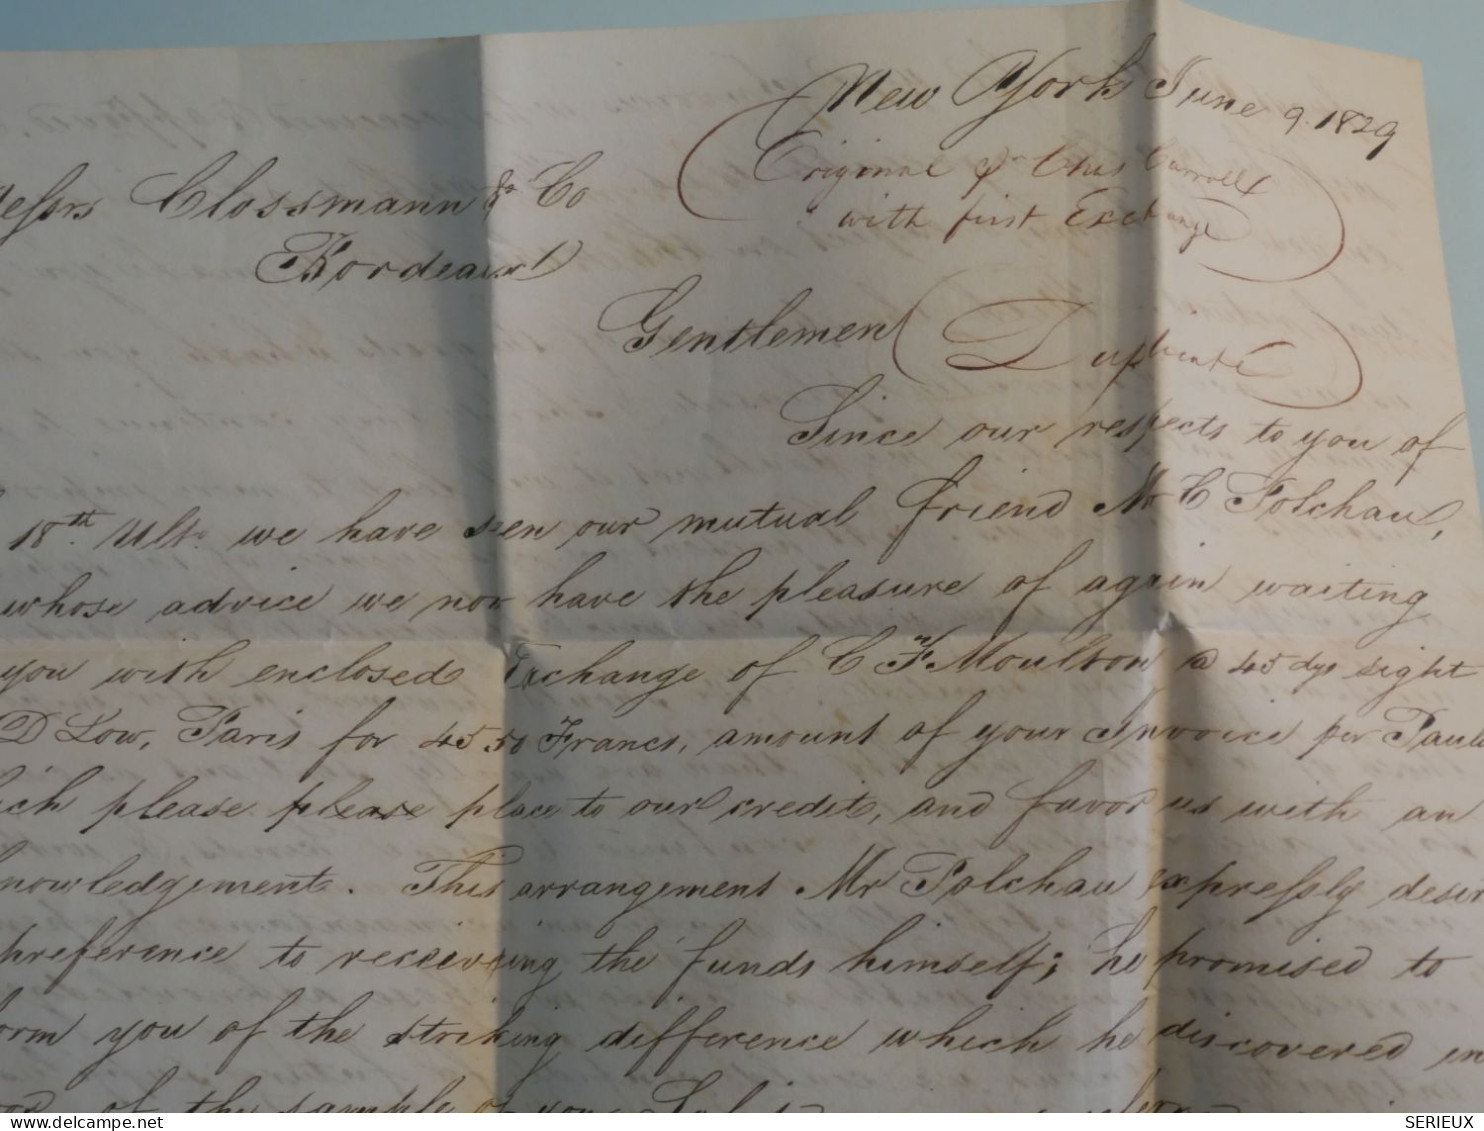 New York June 9. 1829
Original pr Chas Carroll
with first Exchange
essrs Clossmann & Co
Bordeaux
Gentlemen
Duplicate
Since our respects to you of
18th Ulto. we have seen our mutual friend Mr C Polchau,
whose advice we now have the pleasure of again waiting
you with enclosed Exchange of C F Moulton @ 45 dys sight
D Low, Paris for 4550 Francs, amount of your Invoice per
ich please please place to our credit, and favor us with an
nowledgement. This arrangement Mr Polchau expressly desir
preference to receiving the funds himself; he promised to
orm you of the striking difference which he discovered in
of the sample of your
delcampe.net
SERIEUX